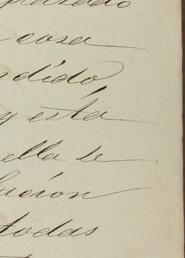 cosa
ndido
y esta
ella se
lación
todas